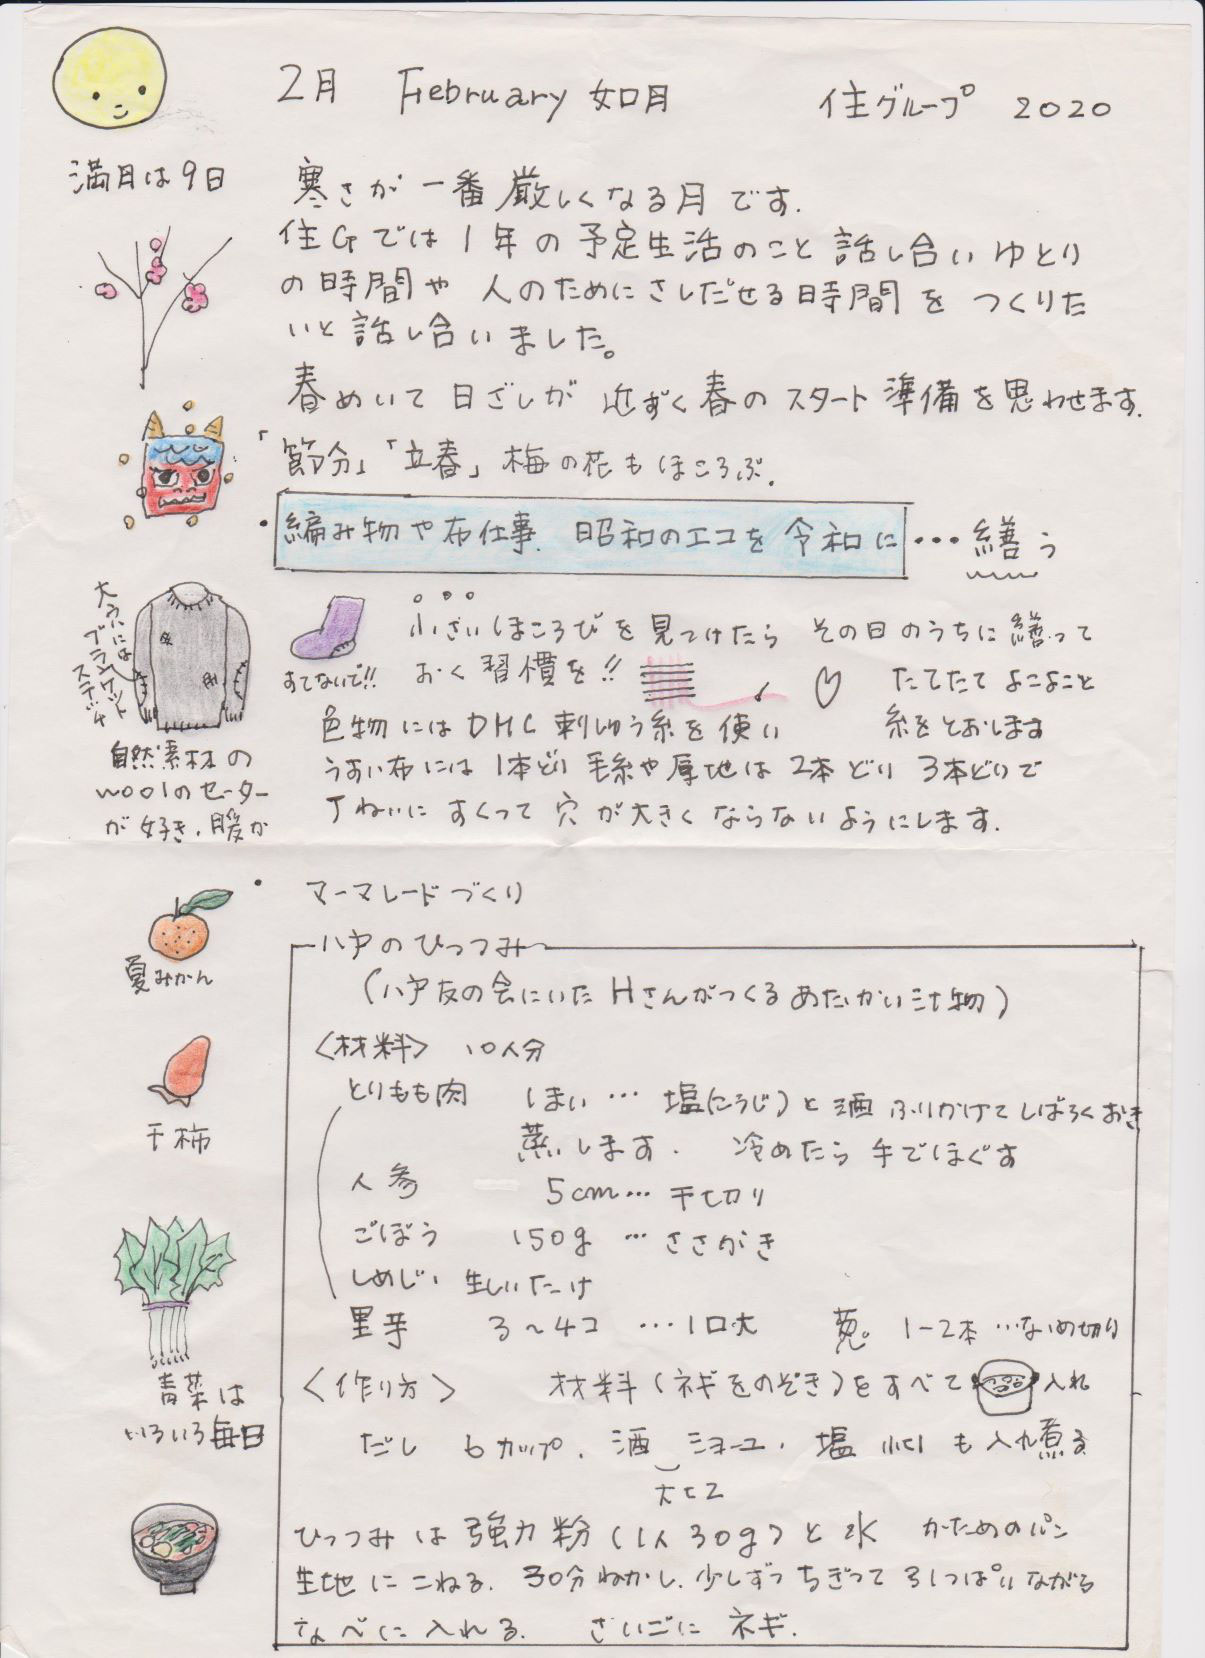 2月 February 如月 住グループ 2020
満月は9日
寒さが一番厳しくなる月です.
住Gでは1年の予定生活のこと話し合いゆとり
の時間や 人のためにさしだせる時間を つくりた
いと話し合いました。
春めいて日ざしが 近ずく春のスタート準備を思わせます.
「節分」「立春」梅の花もほころぶ.
・編み物や布仕事. 昭和のエコを令和に・・・繕う
大穴には
ブランケット
ステッチ
自然素材の
woolのセーター
が好き、暖か
すてないで!!
小さいほころびを見つけたら その日のうちに繕って
おく習慣を!!
たてたてよこよこと
糸をとおします
色物にはDMC刺しゅう糸を使い
うすい布には1本どり 毛糸や厚地は2本どり 3本どりで
丁ねいにすくって穴が大きくならないようにします.
・マーマレードづくり
夏みかん
干柿
青菜は
いろいろ毎日
八戸のひっつみ
(八戸友の会にいたHさんがつくるあたたかい汁物)
〈材料〉 10人分
とりもも肉 1まい… 塩(こうじ)と酒ふりかけてしばらくおき
蒸します. 冷めたら手でほぐす
人参 5cm…千七切り
ごぼう 150g …ささがき
しめじ、生しいたけ
里芋 3〜4コ …1口大 葱。1-2本…ななめ切り
〈作り方〉 材料(ネギをのぞき)をすべて 入れ
だし 6カップ. 酒 ショーユ. 塩 小1も入れ煮る
大さ2
ひっつみは強力粉(1人30g)と水 かためのパン
生地にこねる. 30分ねかし. 少しずつちぎってひっぱりながら
なべに入れる. さいごにネギ.